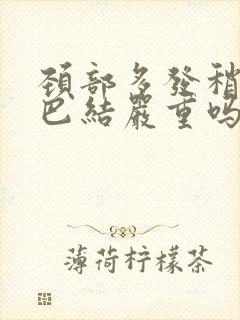 頚部多發稍
巴結嚴重吗
薄荷柠檬茶